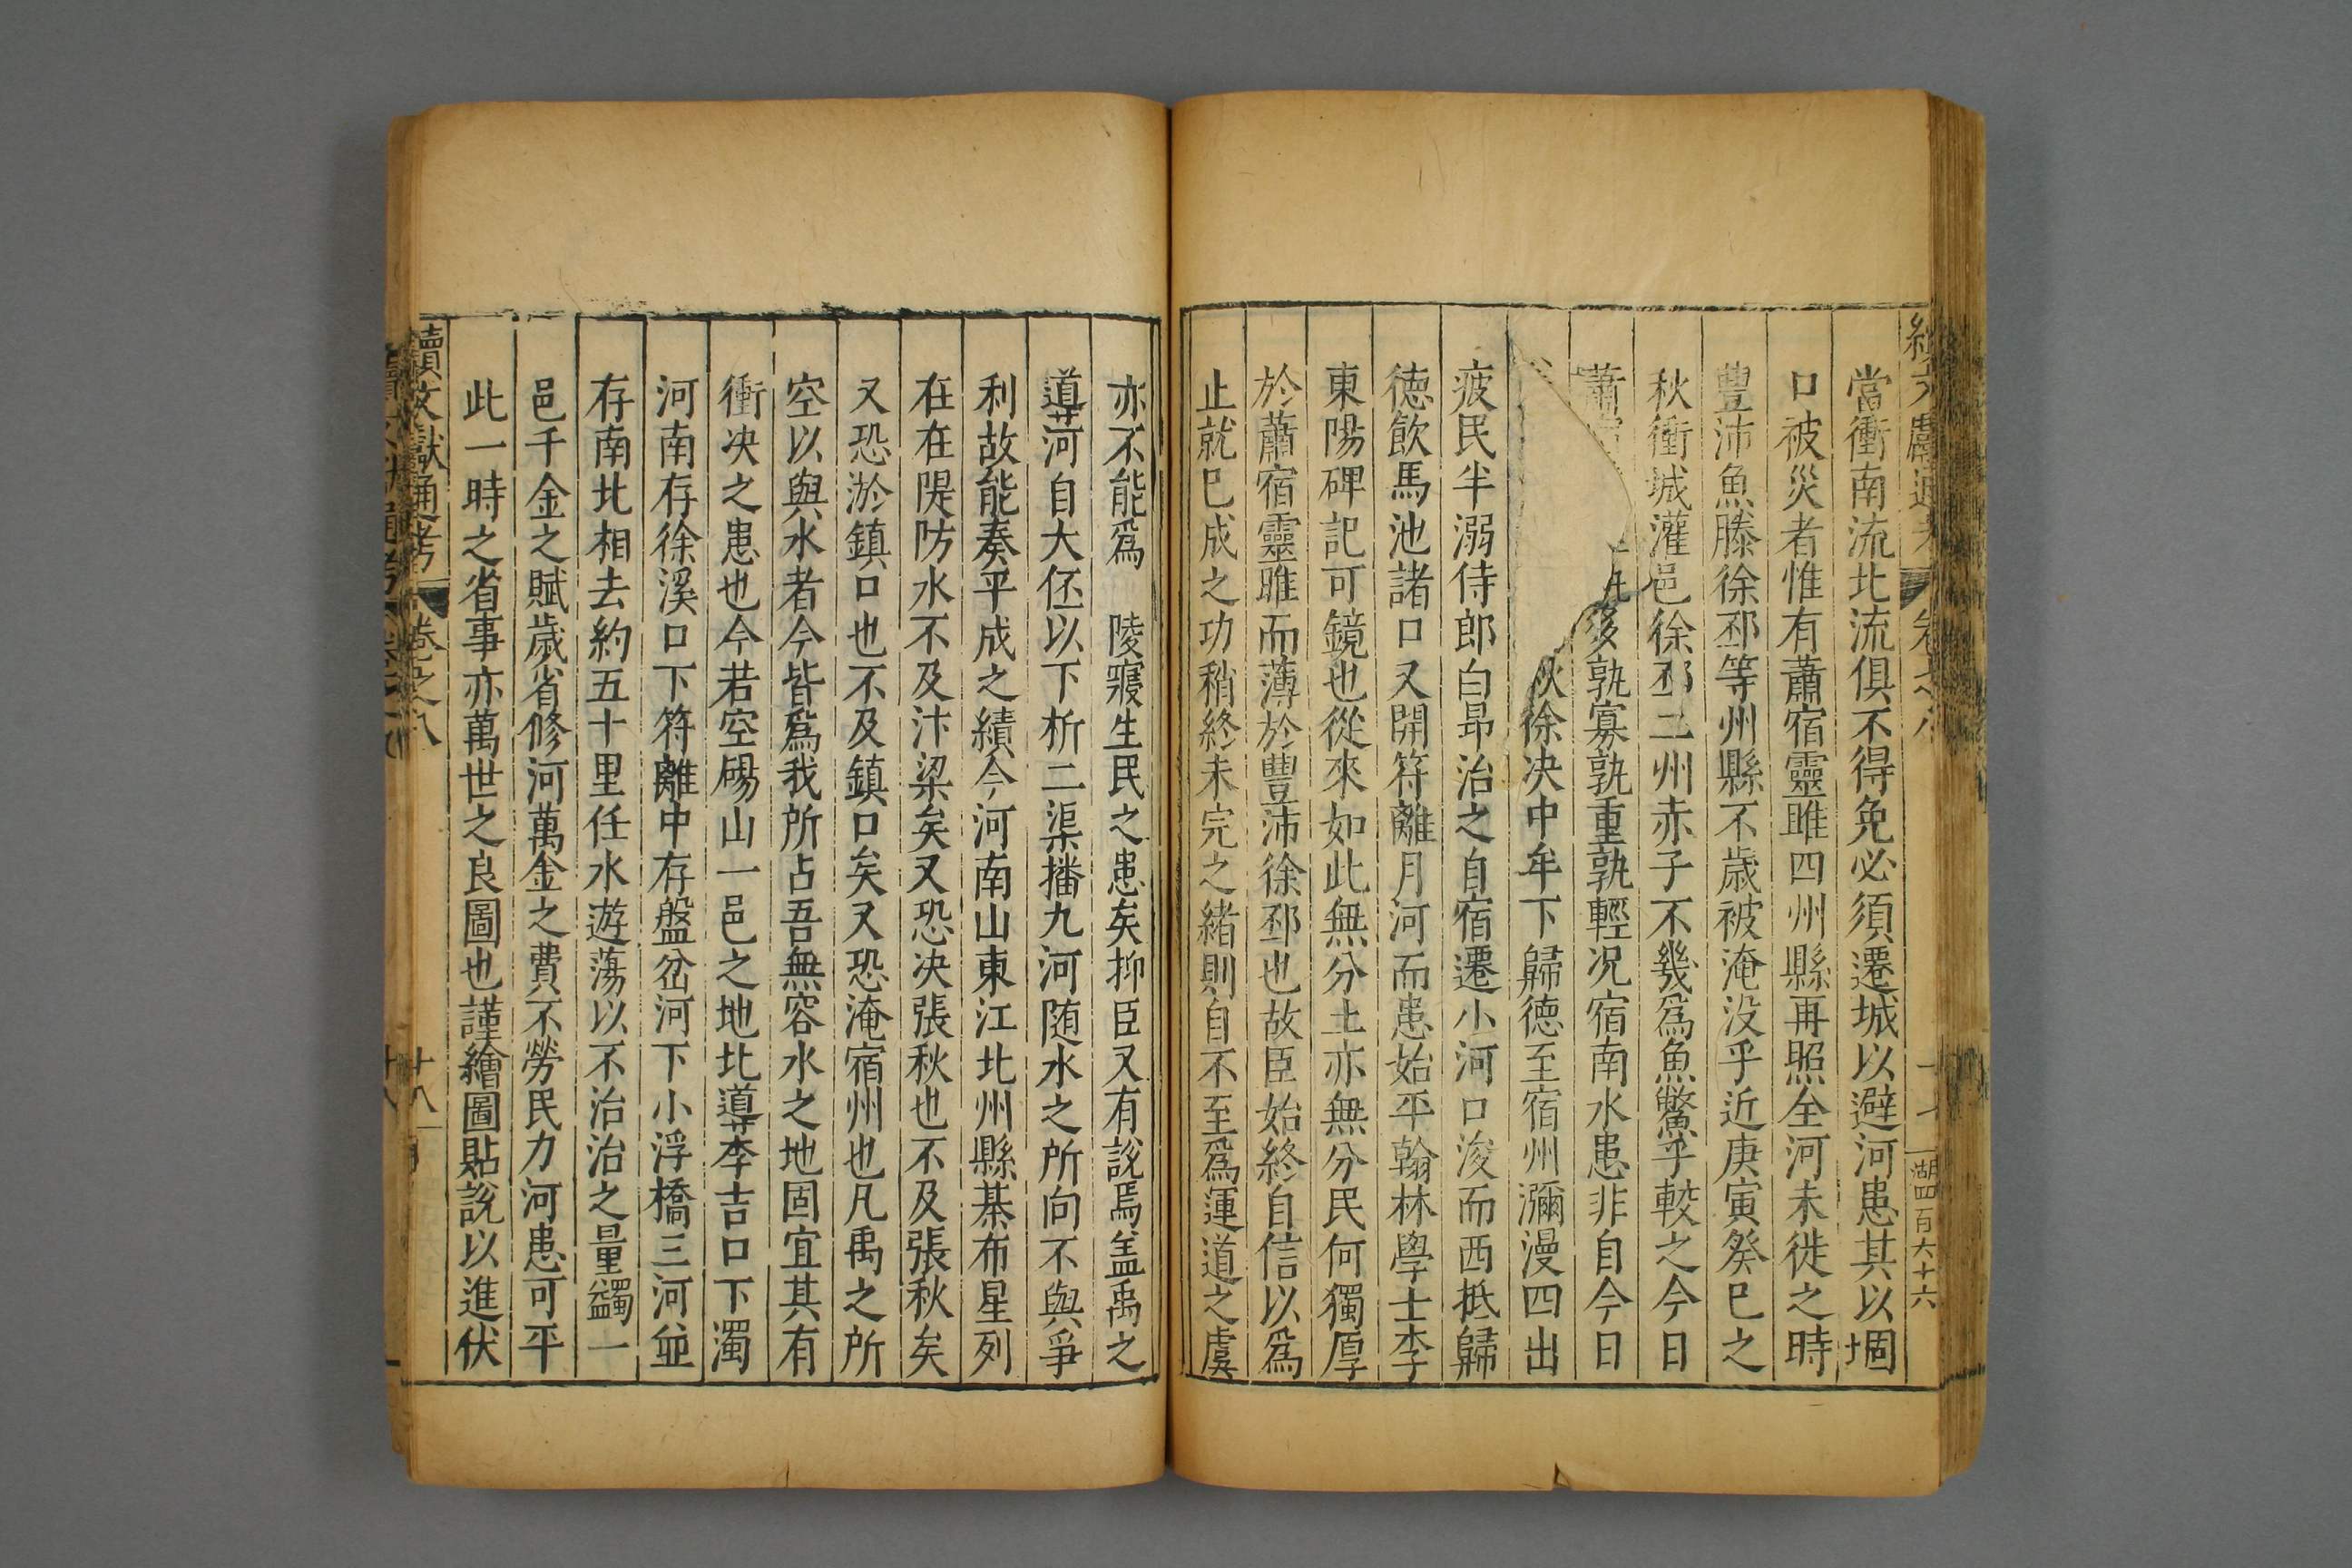 當衝南流北流俱不得免必須遷城以避河患其以堌
口被災者惟有蕭宿靈睢四州縣再照全河未徙之時
豐沛魚滕徐邳等州縣不歲被淹没乎近庚寅癸巳之
秋衝城灌邑徐邳二州赤子不幾爲魚鱉乎較之今日
蕭 多孰寡孰重孰輕况宿南水患非自今日
秋徐决中牟下歸德至宿州瀰漫四出
疲民半溺侍郎白昂治之自宿遷小河口浚而西抵歸
德飲馬池諸口又開符離月河而患始平翰林學士李
東陽碑記可鏡也從來如此無分土亦無分民何獨厚
於蕭宿靈睢而薄於豐沛徐邳也故臣始終自信以爲
止就已成之功稍終未完之緒則自不至爲運道之虞
湖四百六十六
亦不能爲 陵寢生民之患矣抑臣又有說焉盖禹之
導河自大伾以下析二渠播九河随水之所向不與爭
利故能奏平成之績今河南山東江北州縣棊布星列
在在隄防水不及汴梁矣又恐决張秋也不及張秋矣
又恐淤鎮口也不及鎮口矣又恐淹宿州也凡禹之所
空以與水者今皆爲我所占吾無容水之地固宜其有
衝决之患也今若空碭山一邑之地北導李吉口下濁
河南存徐溪口下符離中存盤岔河下小浮橋三河並
存南北相去約五十里任水遊蕩以不治治之量蠲一
邑千金之賦歲省修河萬金之費不勞民力河患可平
此一時之省事亦萬世之良圖也謹繪圖貼說以進伏
續文獻通考 卷之八
廿八